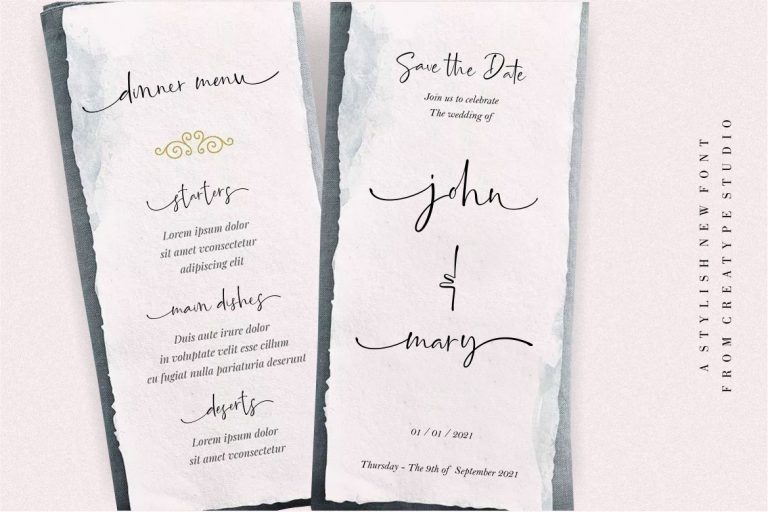 dinner menu
starters
Lorem ipsum dolor
sit amet vconsectetur
adipiscing elit
main dishes
Duis aute irure dolor
in voluptate velit esse cillum
eu fugiat nulla pariaturia deserunt
deserts
Lorem ipsum dolor
sit amet vconsectetur
Save the Date
Join us to celebrate
The wedding of
john
&
mary
01 / 01 / 2021
Thursday - The 9th of September 2021
A STYLISH NEW FONT
FROM CREATYPE STUDIO